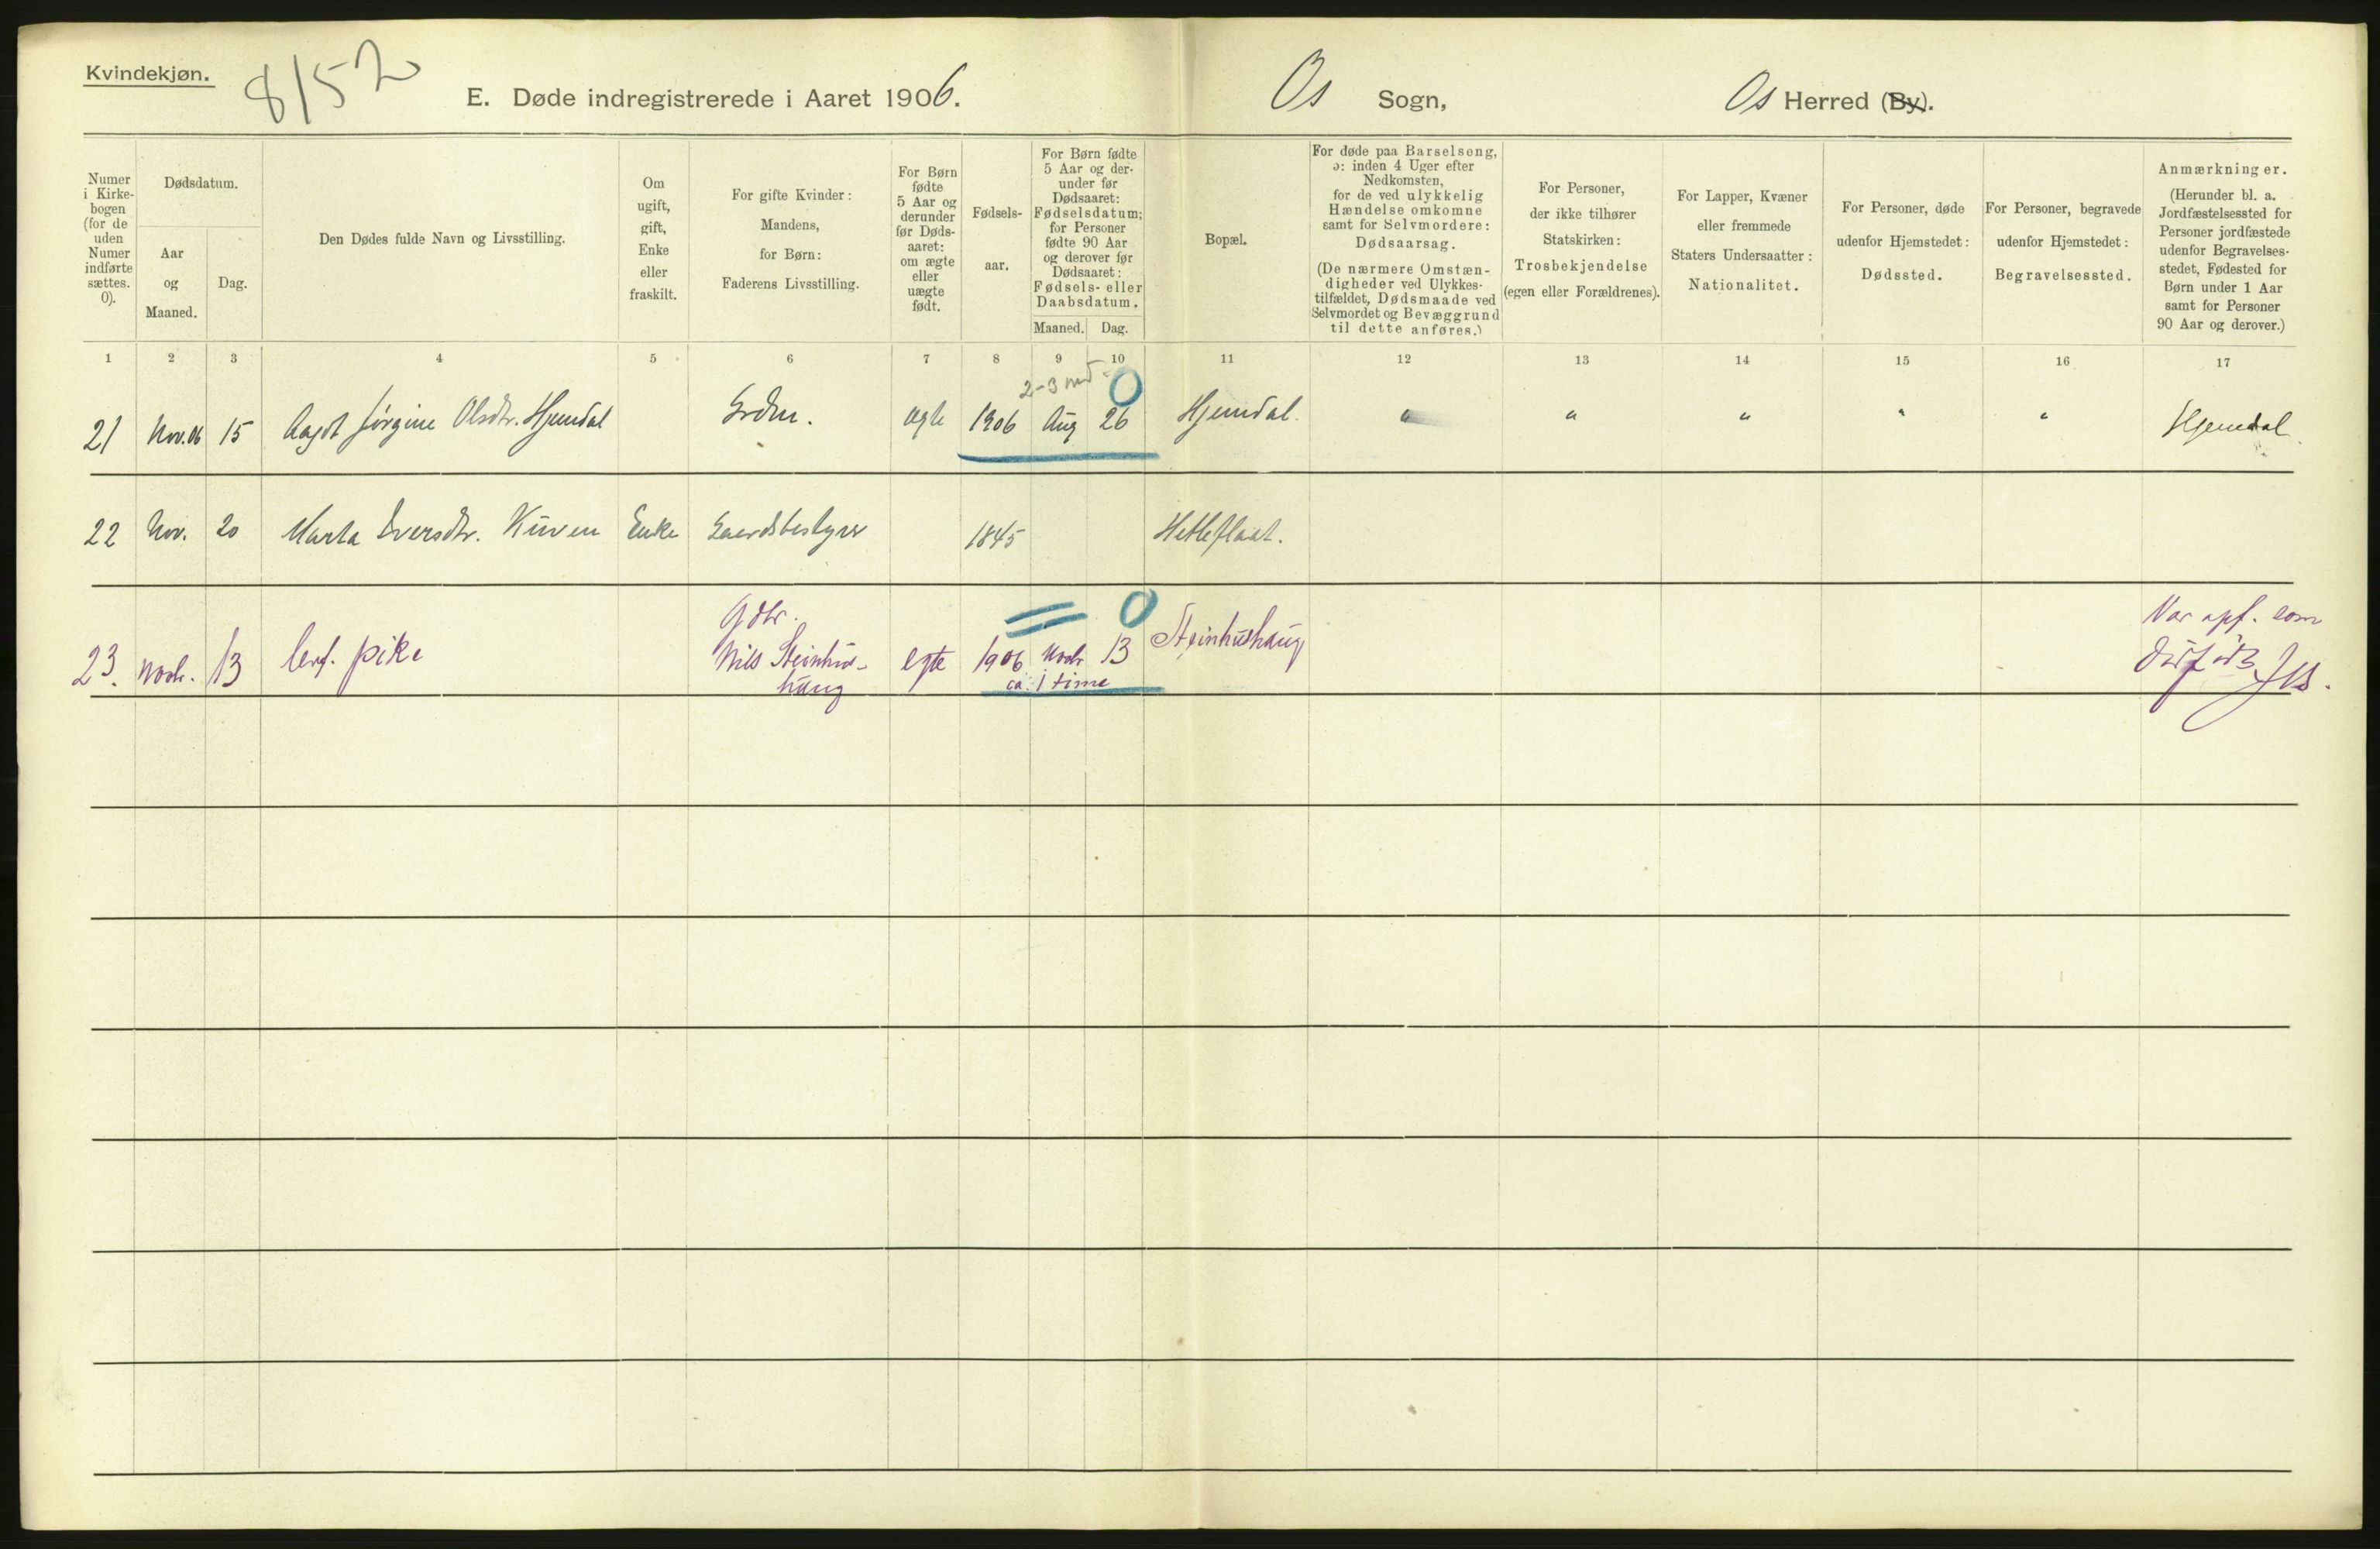 Kvindekjøn.
8152
E. Døde indregistrerede i Aaret 1906.
Os Sogn,
Os Herred (By).
Numer
i Kirke-
bogen
(for de
uden
Numer
indførte
sættes.
0).
Dødsdatum.
Aar
og
Maaned.
Dag.
Den Dødes fulde Navn og Livsstilling.
Om
ugift,
gift,
Enke
eller
fraskilt.
For gifte Kvinder:
Mandens,
for Børn:
Faderens Livsstilling.
For Børn
fødte
5 Aar og
derunder
før Døds-
aaret:
om ægte
eller
uægte
født.
Fødsels-
aar.
For Børn fødte
5 Aar og der-
under før
Dødsaaret:
Fødselsdatum;
for Personer
fødte 90 Aar
og derover før
Dødsaaret:
Fødsels- eller
Daabsdatum.
Maaned. Dag.
Bopæl.
For døde paa Barselseng,
ɔ: inden 4 Uger efter
Nedkomsten,
for de ved ulykkelig
Hændelse omkomne
samt for Selvmordere:
Dødsaarsag.
(De nærmere Omstæn-
digheder ved Ulykkes-
tilfældet, Dødsmaade ved
Selvmordet og Bevæggrund
til dette anføres.)
For Personer,
der ikke tilhører
Statskirken:
Trosbekjendelse
(egen eller Forældrenes).
For Lapper, Kvæner
eller fremmede
Staters Undersaatter:
Nationalitet.
For Personer, døde
udenfor Hjemstedet:
Dødssted.
For Personer, begravede
udenfor Hjemstedet:
Begravelsessted.
Anmærkninger.
(Herunder bl. a.
Jordfæstelsessted for
Personer jordfæstede
udenfor Begravelses-
stedet, Fødested for
Børn under 1 Aar
samt for Personer
90 Aar og derover.)
1 2 3 4 5 6 7 8 9 10 11 12 13 14 15 16 17
2-3 md 0
21 Nov. 06 15 Aagot Jørgine Olsdtr. Hjemdal ægte 1906 Aug 26 Hjemdal. " " " " " Hjemdal
22 Nov. 20 Marta Iversdtr. Kuven Enke Gaardsbestyrer 1845 Hetleflaat.
23. Novbr. 13 pike Gdbr. egte 1906 Novbr 13 0 Steinhushaug Var opf. som
Nils Steinhus-
haug
ca. 1 time